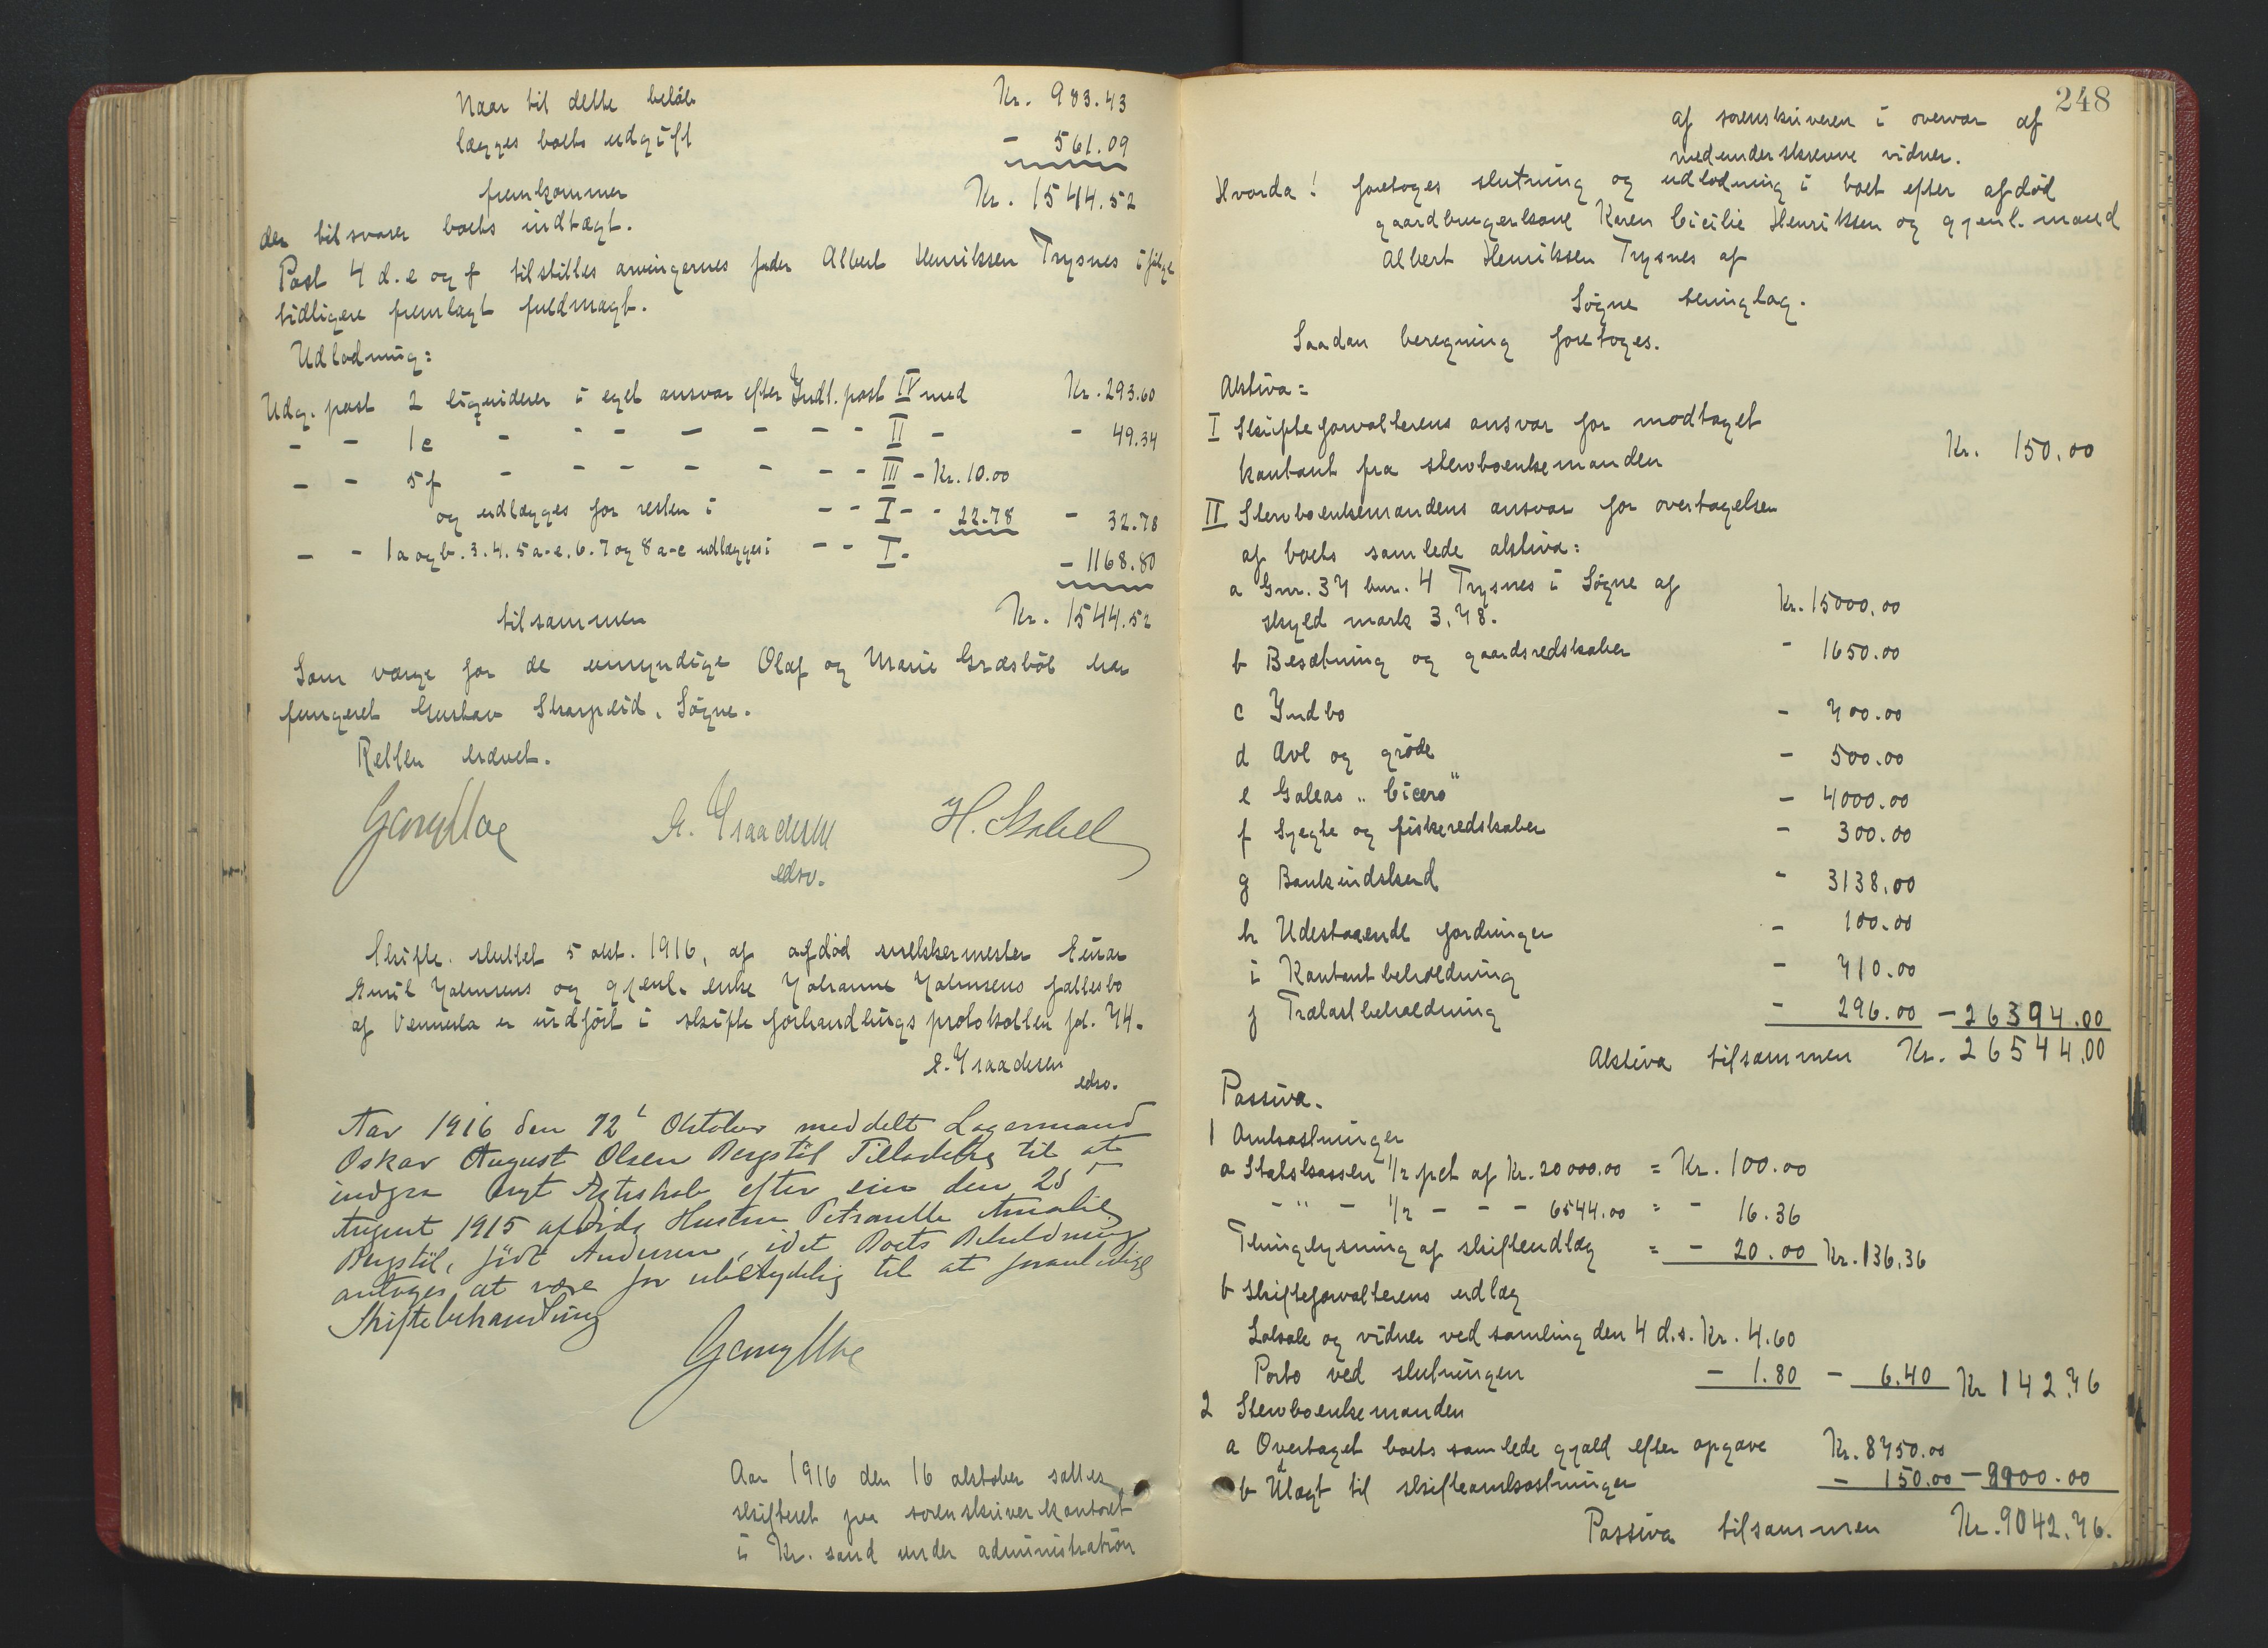 Naar til dette beløb Kr. 983.43
lægges boets udgift - 561.09
fremkommer Kr. 1544.52
der tilsvarer boets indtægt.
Post 4 d. e og f tilstilles arvingernes fader Albert Henriksen Trysnes ifølge
tidligere fremlagt fuldmagt.
Udlodning:
Udg. post 2 ligviderer i eget ansvar efter Indt. post IV med Kr. 293.60
- - 1c - - - - - - - II - - 49.34
- - 5f - - - - - - - III - Kr. 10.00
og udlægges for resten i - - I - - 22.78 - 32.78
- - 1a og b. 3. 4. 5 a-e. 6. 7 og 8 a-c udlægges i - - I - - 1168.80
tilsammen Kr. 1544.52
Som værge for de umyndige Olaf og Marie Græsbøl har
fungeret Gustav Skarpeid, Søgne.
Retten hævet.
E. Isaadesen H. Stabell
edsv.
Skifte sluttet 5 okt. 1916, af afdød snekkermester Einar
Emil Johnsens og gjenl. enke Johanne Johnsens fællesbo
af Vennesla er indført i skifteforhandlings protokollen fol. 74.
E. Isaadesen
edsv.
Aar 1916 den 12 Oktober meddelt Lagermand
Oskar August Olsen Bergstøl Tilladelse til at
indgaa nyt Ægteskab efter sin den 25
August 1915 afdøde Hustru Petronelle Amalie
Bergstøl, født Andersen, idet Boets Beholdning
antages at være for ubetydelig til at foranledige
Skiftebehandling
Aar 1916 den 16 oktober sattes
skifteret paa sorenskriverkontoret
i Kr. sand under administration
248
af sorenskriveren i overvær af
medunderskrevne vidner.
Hvorda! foretoges slutning og udlodning i boet efter afdød
gaardbrugerkone Karen Cicilie Henriksen og gjenl. mand
Albert Henriksen Trysnes af
Søgne tinglag.
Saadan beregning foretoges.
Aktiva:
I Skifteforvalterens ansvar for modtaget
kontant fra stervboenkemanden Kr. 150.00
II Stervboenkemandens ansvar for overtagelsen
af boets samlede aktiva:
a Gnr. 37 bnr. 4 Trysnes i Søgne af
skyld mark 3.78. Kr. 15000.00
b Besætning og gaardsredskaber - 1650.00
c Indbo - 700.00
d Avl og grøde - 500.00
e Galeas „Cicero" - 4000.00
f Sjegte og fiskeredskaber - 300.00
g Bankindskud - 3138.00
h Udestaaende fordringer - 100.00
i Kontantbeholdning - 710.00
j Trælastbeholdning - 296.00 - 26394.00
Aktiva tilsammen Kr. 26544.00
Passiva.
1 Omkostninger
a Statskassen 1/2 pct af Kr. 20000.00 = Kr. 100.00
- " - 1/2 - - - 6544.00 = - 16.36
Thinglysning af skifteudlæg = - 20.00 Kr. 136.36
b Skifteforvalterens udlæg
Lokale og vidner ved samling den 4 d.s. Kr. 4.60
Porto ved slutningen - 1.80 - 6.40 Kr 142.76
2 Stervboenkemanden
a Overtaget boets samlede gjæld efter opgave Kr. 8750.00
b Udlagt til skifteomkostninger - 150.00 - 8900.00
Passiva tilsammen Kr. 9042.76.